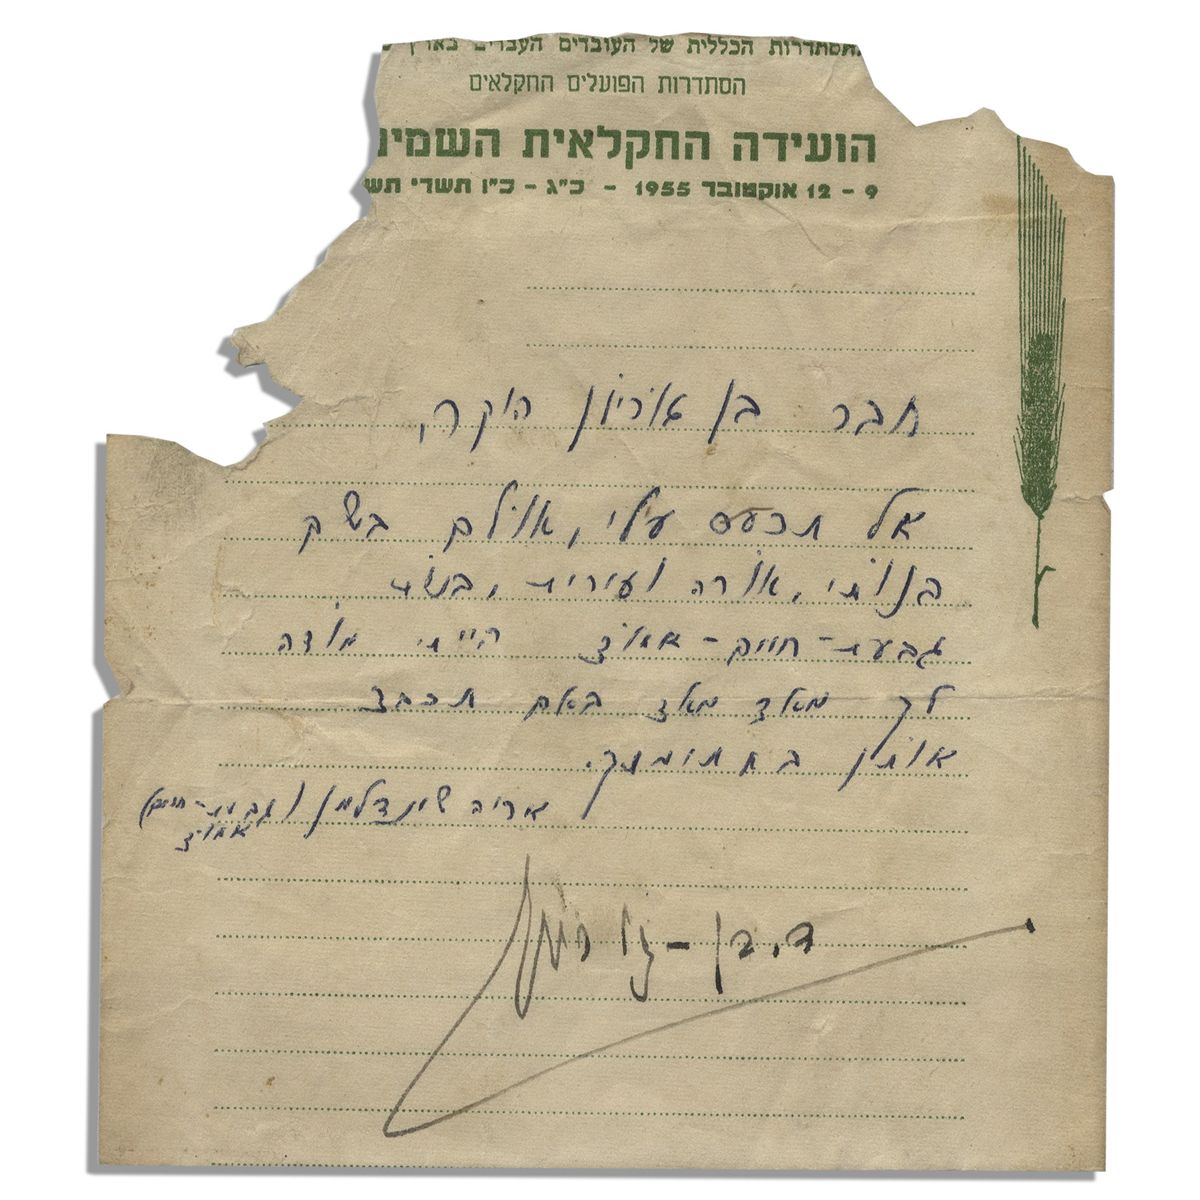 הסתדרות הכללית של העובדים העברים בארץ
הסתדרות הפועלים החקלאים
הועידה החקלאית השמינ
9 – 12 אוקטובר 1955 – כ"ג – כ"ו תשרי תש
חבר בן גוריון היקר,
אל תכעס עלי, אולם בשם
בנותי, אורה ועירית, בנות
גבעת-חיים-מאוחד הייתי מודה
לך מאד מאד באם תכבד
אותן בחתימתך.
אריה שינדלמן (גבעת-חיים)
ד. בן-גוריון